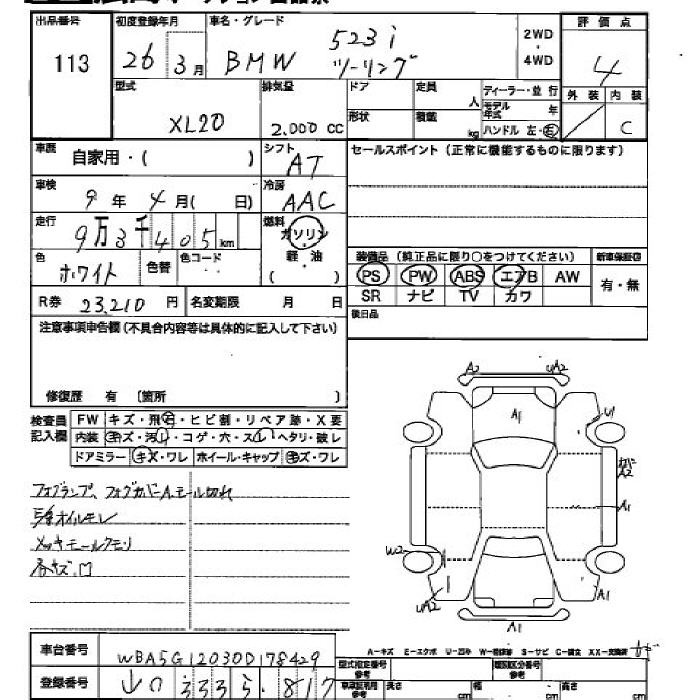 出品番号 初度登録年月 車名・グレード 2WD 評価点
113 26 3月 BMW 523i ツーリング ・ 4WD 4
型式 排気量 ドア 定員 人 ディーラー・並行 外装 内装
XL20 2.000 CC 形状 積載 kg モデル年式 年 C
ハンドル 左・右
車歴 自家用・( ) シフト AT セールスポイント(正常に機能するものに限ります)
車検 9年4月( 日) 冷房 AAC
走行 9万3千405km 燃料 ガソリン
色 ホワイト 色替 色コード 軽・油 ( )
装備品(純正品に限り○をつけてください) 新車保証書
PS PW ABS エアB AW 有・無
SR ナビ TV カワ
R券 23.210円 名変期限 月 日 後日品
注意事項申告欄(不具合内容等は具体的に記入して下さい)
修復歴 有 (箇所 )
検査員記入欄 FW キズ・飛石・ヒビ割・リペア跡・X要
内装 キズ・汚れ・コゲ・穴・スレ・ヘタリ・破レ
ドアミラー キズ・ワレ ホイール・キャップ キズ・ワレ
フォグランプ、フォグカバーA.モール切れ
オイルモレ
メッキモールクモリ
A2 UA2
A1
U1
A2
A1
W2
UA2
A1
A1
A-キズ E-エクボ U-凹み W-補修跡 S-サビ C-腐食 XX-交換済
車台番号 WBA5G12030D178429
登録番号 山口 333 ら ・817
型式指定番号 参考 類別区分番号 参考
長さ cm 幅 cm 高さ cm